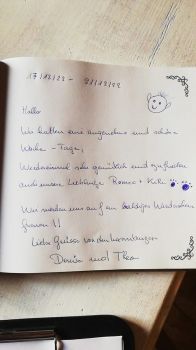 17/12/22 - 21/12/22
Hallo
Wir hatten eine angenehme und schöne
Woche - Tage,
sehr gemütlich und zufrieden
auch unsere Lieblinge Romeo + Kiki
Wir würden uns auf ein baldiges Wiedersehen
freuen !!
Liebe Grüsse von den
und Theo